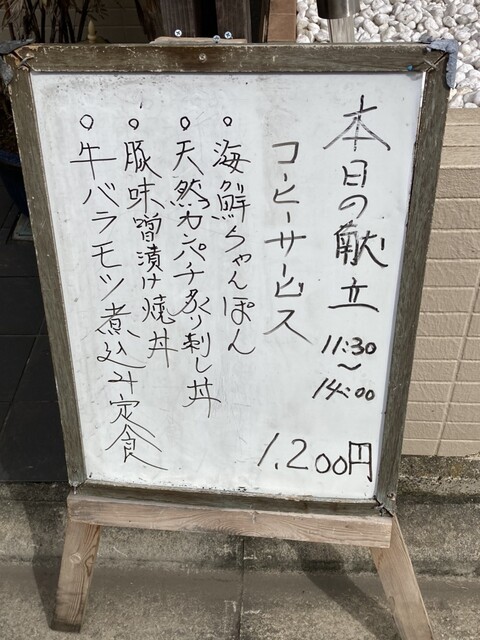 本日の献立
11:30
〜
14:00
コーヒーサービス
。海鮮ちゃんぽん
。天然カンパチ炙り刺し丼
。豚味噌漬け焼丼
。牛バラモツ煮込み定食
1,200円